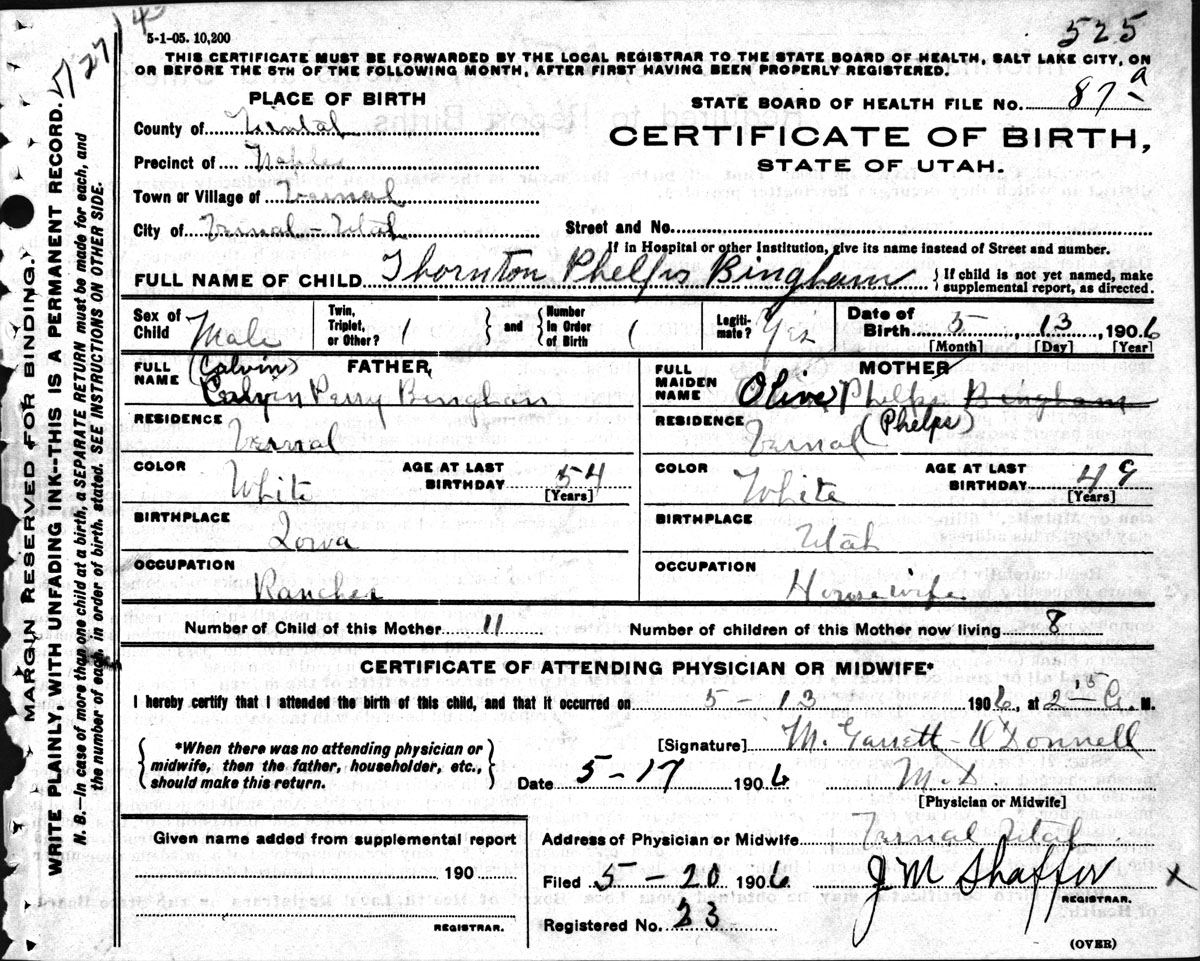 43
5-1-05. 10,200
525
THIS CERTIFICATE MUST BE FORWARDED BY THE LOCAL REGISTRAR TO THE STATE BOARD OF HEALTH, SALT LAKE CITY, ON
OR BEFORE THE 5TH OF THE FOLLOWING MONTH, AFTER FIRST HAVING BEEN PROPERLY REGISTERED.
PLACE OF BIRTH
STATE BOARD OF HEALTH FILE No. 87 a
County of Uintah
CERTIFICATE OF BIRTH,
Precinct of
STATE OF UTAH.
Town or Village of Vernal
City of Vernal - Utah Street and No.
If in Hospital or other Institution, give its name instead of Street and number.
FULL NAME OF CHILD Thornton Phelps Bingham } If child is not yet named, make supplemental report, as directed.
Sex of Child Male Twin, Triplet, or Other? 1 } and { Number In Order of Birth 1 Legiti- mate? Yes Date of Birth 5, 13, 1906
[Month] [Day] [Year]
FULL NAME FATHER (Calvin) Calvin Perry Bingham
FULL MAIDEN NAME MOTHER Olive Phelps Bingham
(Phelps)
RESIDENCE Vernal RESIDENCE Vernal
COLOR White AGE AT LAST BIRTHDAY 54 [Years] COLOR White AGE AT LAST BIRTHDAY 49 [Years]
BIRTHPLACE Iowa BIRTHPLACE Utah
OCCUPATION Rancher OCCUPATION Housewife
Number of Child of this Mother 11 Number of children of this Mother now living 8
CERTIFICATE OF ATTENDING PHYSICIAN OR MIDWIFE*
I hereby certify that I attended the birth of this child, and that it occurred on 5 - 13 1906, at 2 - 5 A. M.
{ *When there was no attending physician or midwife, then the father, householder, etc., should make this return. }
[Signature] M. Garrett - O'Donnell
Date 5-17 1906 M.D
[Physician or Midwife]
Given name added from supplemental report
190
REGISTRAR.
Address of Physician or Midwife Vernal Utah
Filed 5 - 20 1906 J M Shaffer x
REGISTRAR.
Registered No. 23
(OVER)
27
MARGIN RESERVED FOR BINDING.
WRITE PLAINLY WITH UNFADING INK--THIS IS A PERMANENT RECORD.
N. B.—In case of more than one child at a birth, a SEPARATE RETURN must be made for each, and
the number of each, in order of birth, stated. SEE INSTRUCTIONS ON OTHER SIDE.